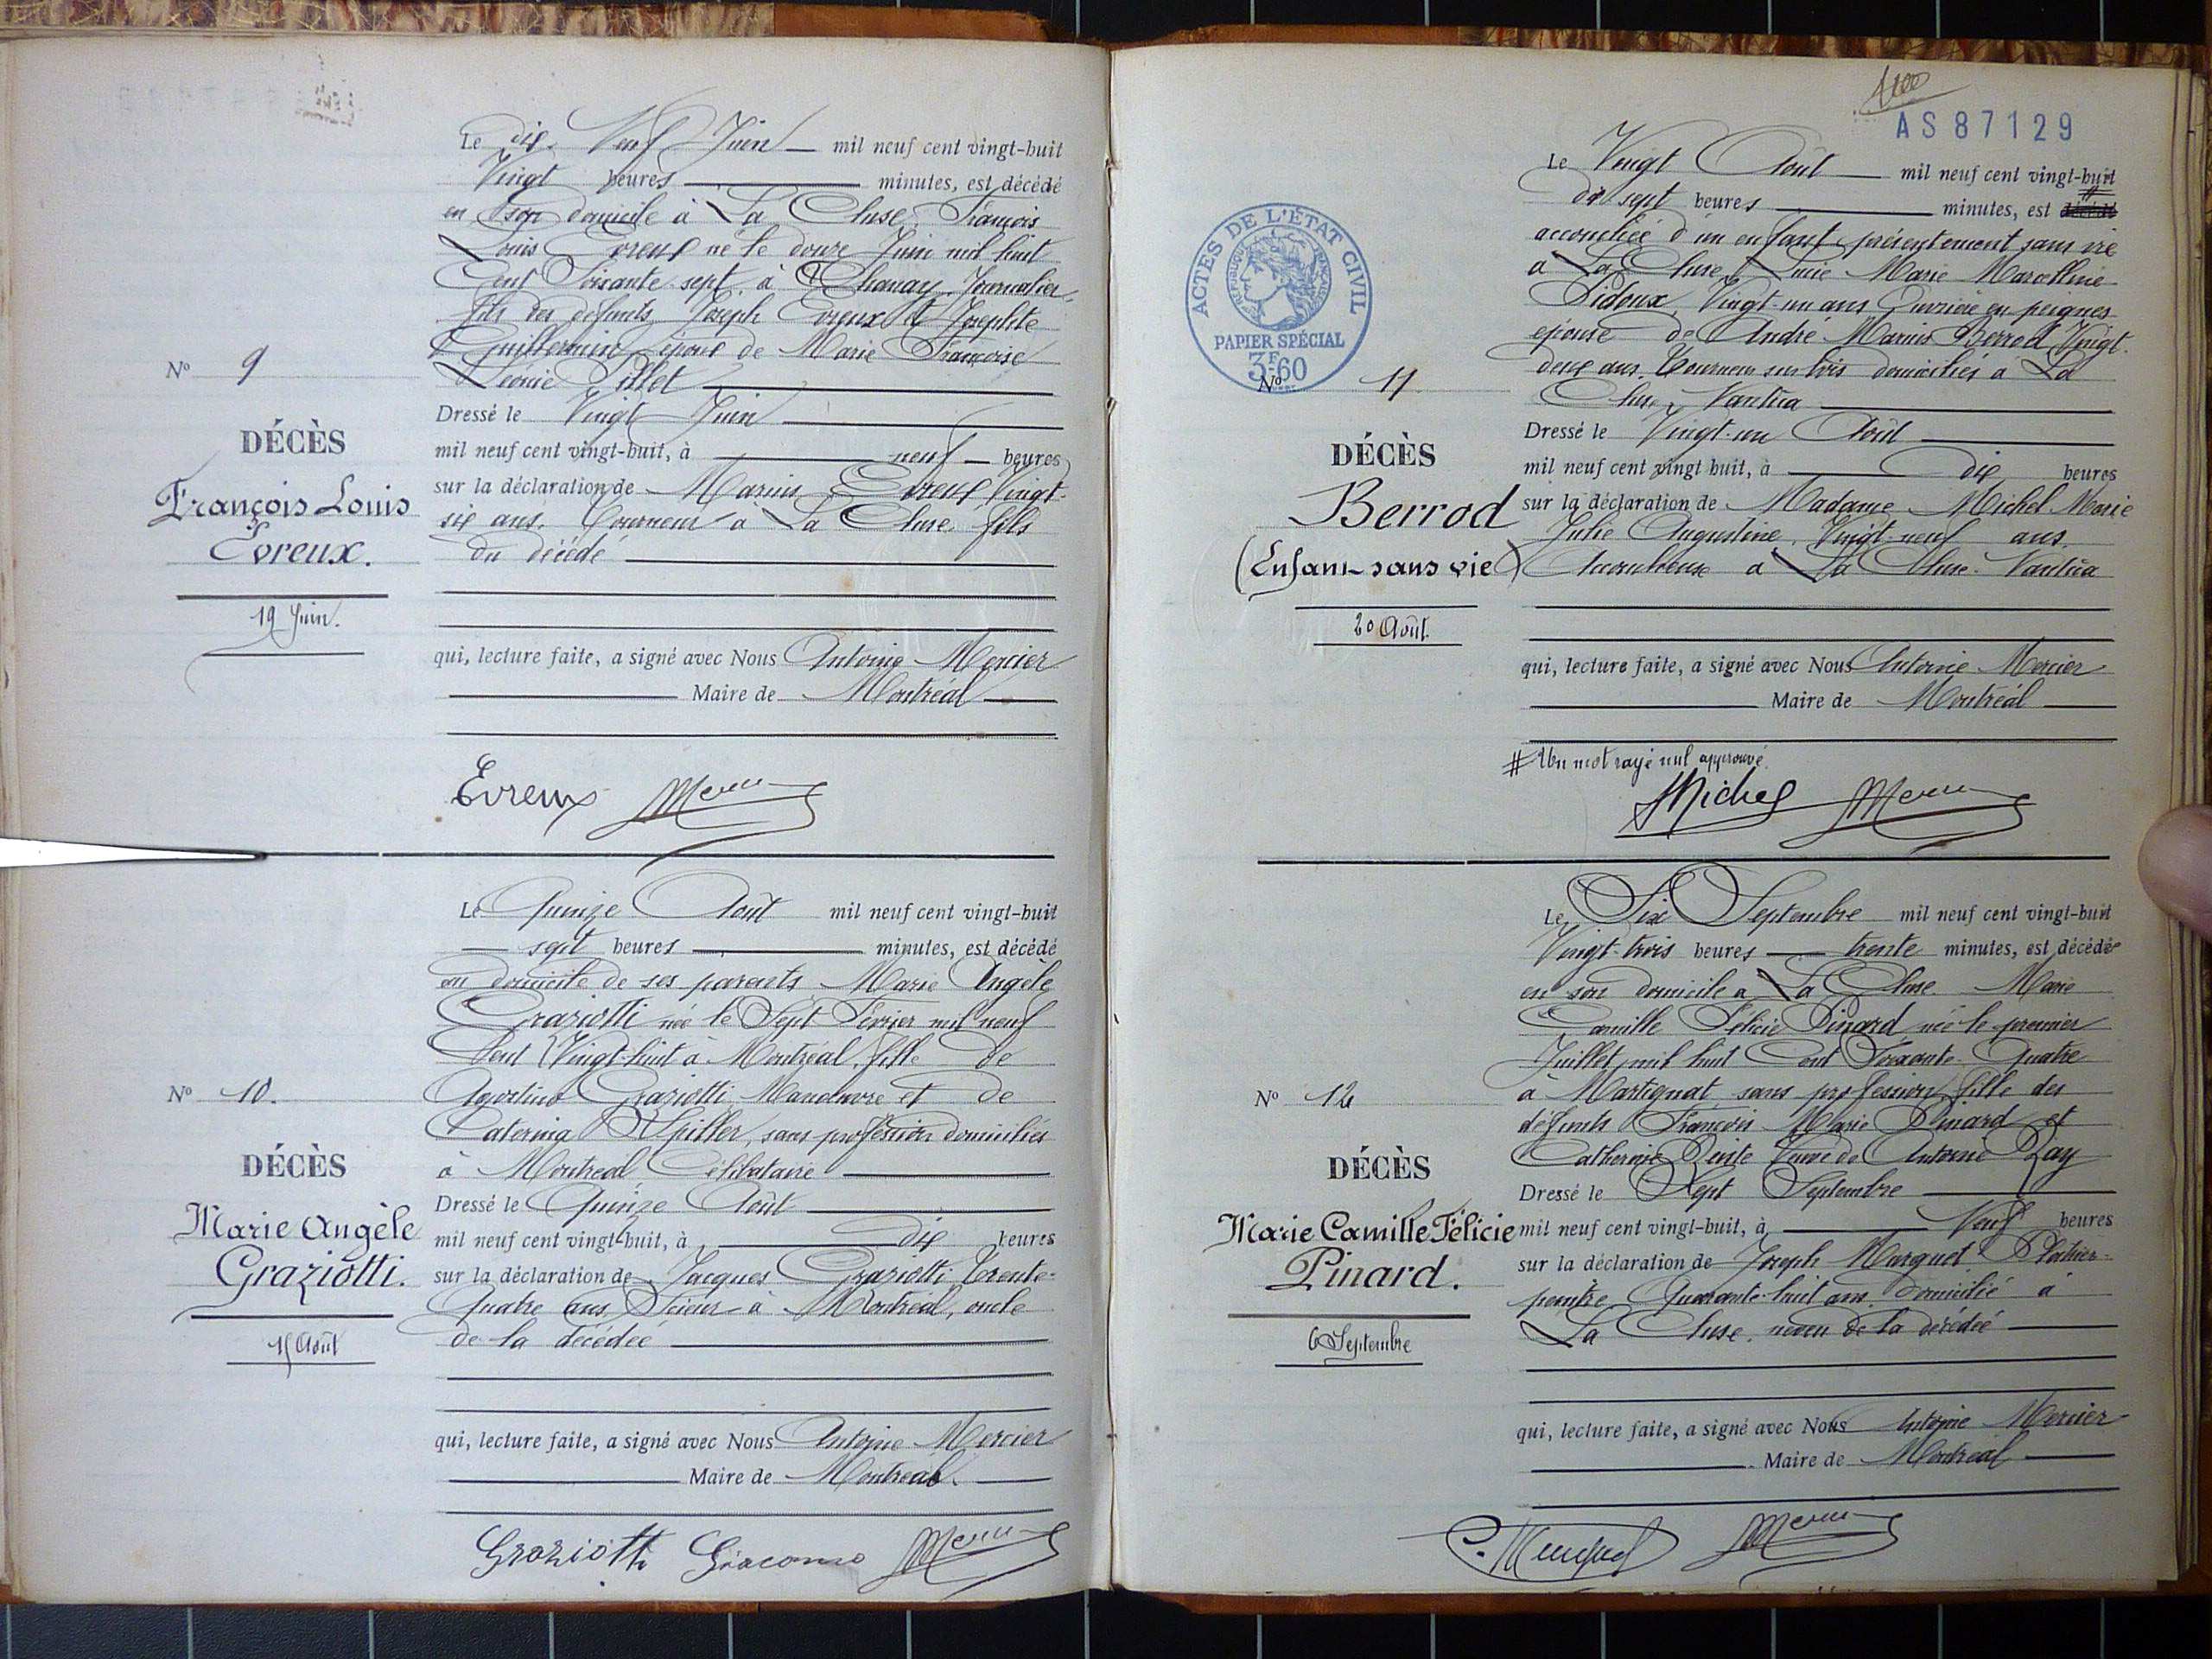 Le dix-Neuf Juin mil neuf cent vingt-huit
Vingt heures minutes, est décédé
en son domicile à La Cluse, François
Louis Evreux né le douze Juin mil huit
Cent Soixante-sept, à Chanay, Journalier,
fils des défunts Joseph Evreux et Josephte
Guillermin, époux de Marie Françoise
Léonie Pillet
Nº 9
DÉCÈS
François Louis
Evreux.
19 Juin.
Dressé le Vingt Juin
mil neuf cent vingt-huit, à neuf heures
sur la déclaration de Marius Evreux Vingt-
six ans, Tourneur à La Cluse, fils
du décédé
qui, lecture faite, a signé avec Nous Antoine Mercier
Maire de Montréal
Evreux Mercier
Le Quinze Août mil neuf cent vingt-huit
sept heures minutes, est décédé
au domicile de ses parents Marie Angèle
Graziotti née le Sept Février mil neuf
Cent Vingt-huit à Montréal, fille de
Agostino Graziotti, Manœuvre et de
Caterina Spiller, sans profession domiciliés
à Montréal, Célibataire
Nº 10.
DÉCÈS
Marie Angèle
Graziotti.
15 Août
Dressé le Quinze Août
mil neuf cent vingt-huit, à dix heures
sur la déclaration de Jacques Graziotti Trente-
Quatre ans, Scieur à Montréal, oncle
de la décédée
qui, lecture faite, a signé avec Nous Antoine Mercier
Maire de Montréal.
Graziotti Giacomo Mercier
AS 87129
ACTES DE L'ÉTAT CIVIL
RÉPUBLIQUE FRANÇAISE
PAPIER SPÉCIAL
3F60
Le Vingt Août mil neuf cent vingt-huit
dix sept heures minutes, est décédé #
accouchée d'un enfant présentement sans vie
à La Cluse, Lucie Marie Marcelline
Pidoux, Vingt-un ans, Ouvrière en peignes
épouse de André Marius Berrod, Vingt-
deux ans, Tourneur sur bois domiciliés à La
Cluse, Nantua
Nº 11
DÉCÈS
Berrod
(Enfant sans vie)
20 Août.
Dressé le Vingt-un Août
mil neuf cent vingt huit, à dix heures
sur la déclaration de Madame Michel Marie
Julie Augustine, Vingt-neuf ans,
Accoucheuse à La Cluse-Nantua
qui, lecture faite, a signé avec Nous Antoine Mercier
Maire de Montréal
# Un mot rayé nul approuvé.
Michel Mercier
Le Six Septembre mil neuf cent vingt-huit
Vingt-trois heures trente minutes, est décédée
en son domicile à La Cluse Marie
Camille Félicie Pinard née le premier
Juillet mil huit Cent Soixante-Quatre
à Martignat, sans profession, fille des
défunts François Marie Pinard et
Catherine Veuve de Antoine Ray
Nº 12
DÉCÈS
Marie Camille Félicie
Pinard.
6 Septembre
Dressé le Sept Septembre
mil neuf cent vingt-huit, à Neuf heures
sur la déclaration de Joseph Marguet Plâtrier-
peintre, Quarante-huit ans, domicilié à
La Cluse, neveu de la décédée
qui, lecture faite, a signé avec Nous Antoine Mercier
Maire de Montréal
Mercier